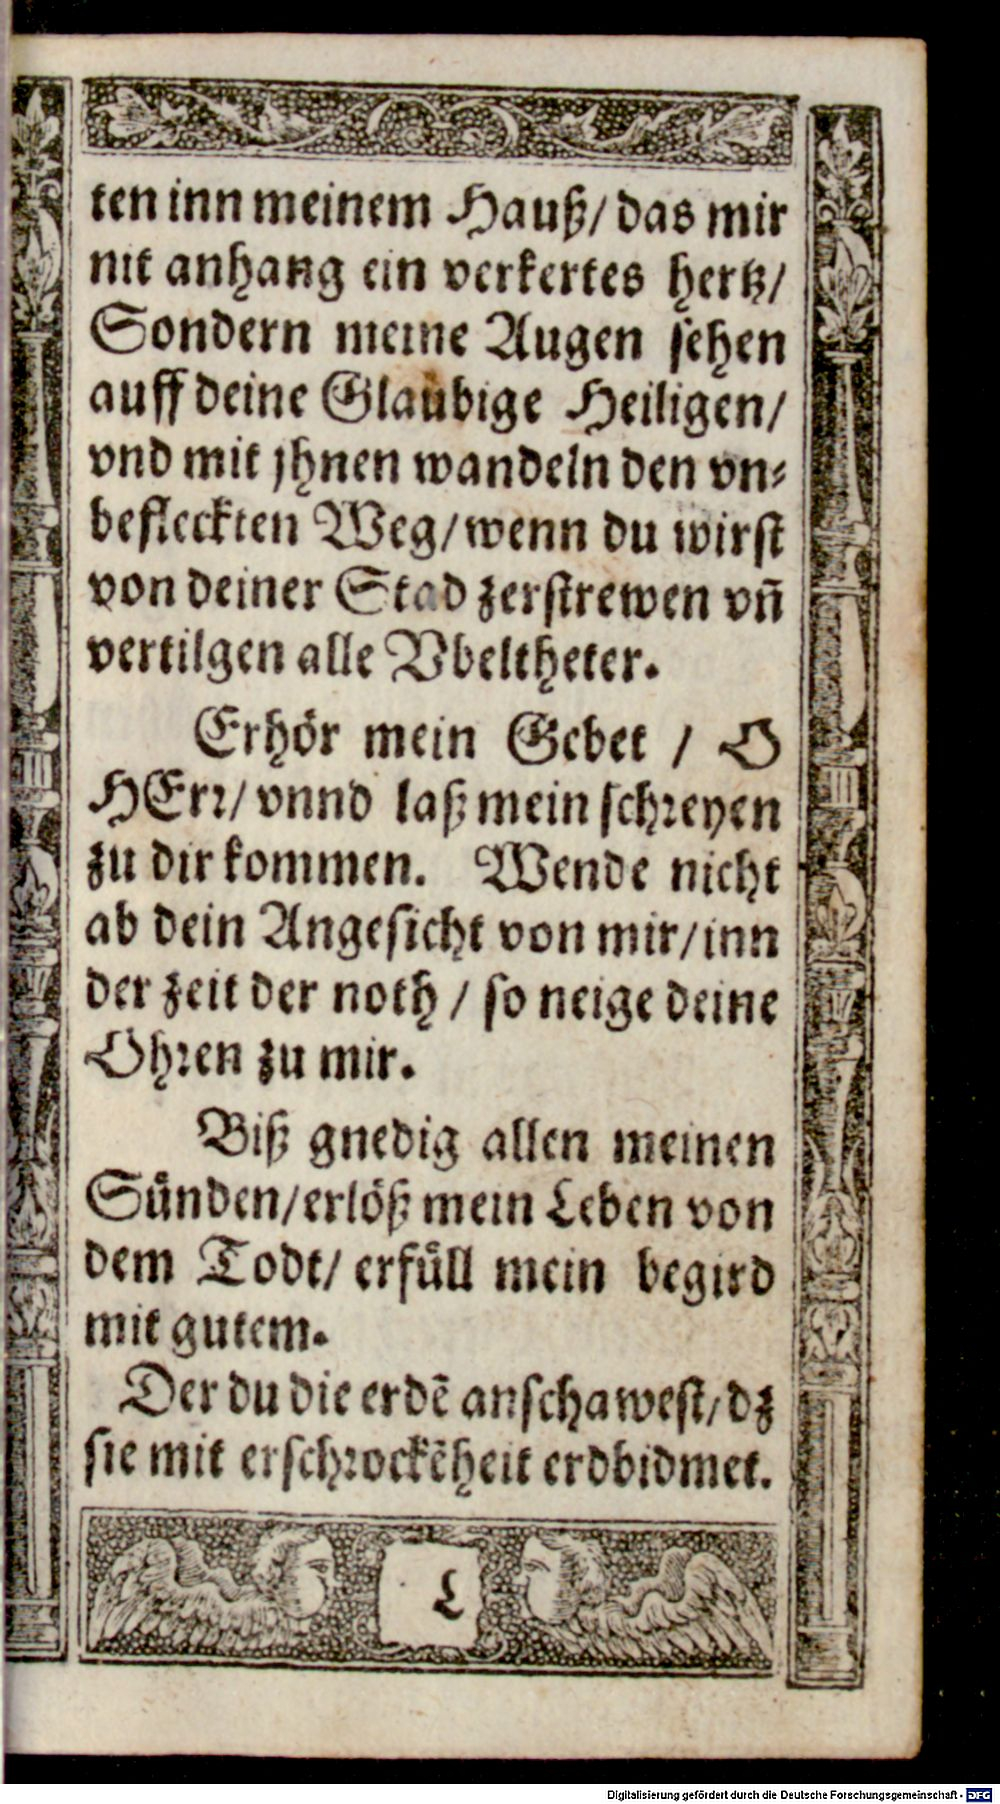 ten inn meinem Hauß/ das mir
nit anhang ein verkertes hertz/
Sondern meine Augen sehen
auff deine Glaubige Heiligen/
vnd mit jhnen wandeln den vn⸗
befleckten Weg/ wenn du wirst
von deiner Stad zerstrewen vñ
vertilgen alle Vbeltheter.
Erhör mein Gebet / O
HErr/ vnnd laß mein schreyen
zu dir kommen. Wende nicht
ab dein Angesicht von mir/ inn
der zeit der noth / so neige deine
Ohren zu mir.
Biß gnedig allen meinen
Sünden/ erlöß mein Leben von
dem Todt/ erfüll mein begird
mit gutem.
Der du die erdẽ anschawest/ dz
sie mit erschrockẽheit erdbidmet.
L
Digitalisierung gefördert durch die Deutsche Forschungsgemeinschaft - DFG